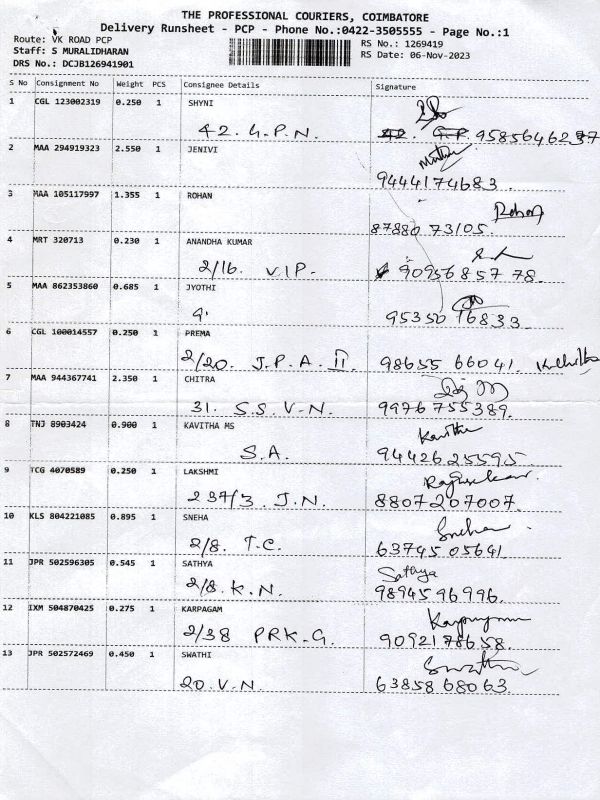 THE PROFESSIONAL COURIERS, COIMBATORE
Delivery Runsheet - PCP - Phone No.:0422-3505555 - Page No.:1
Route: VK ROAD PCP
RS No.: 1269419
Staff: S MURALIDHARAN
RS Date: 06-Nov-2023
DRS No.: DCJB126941901
S No Consignment No Weight PCS Consignee Details Signature
1 CGL 123002319 0.250 1 SHYNI
42. G.P.N. 9585646237
2 MAA 294919323 2.550 1 JENIVI
9444174683.
3 MAA 105117997 1.355 1 ROHAN
Rohan
87880 73105.
4 MRT 320713 0.230 1 ANANDHA KUMAR
2/16. V.I.P. 90956857 78.
5 MAA 862353860 0.685 1 JYOTHI
9. 95350 16833.
6 CGL 100014557 0.250 1 PREMA
2/20. J.P.A. II 98655 66041.
7 MAA 944367741 2.350 1 CHITRA
31. S.S.V.N. 9976755389.
8 TNJ 8903424 0.900 1 KAVITHA MS
Kavitha
S.A. 9442625595
9 TCG 4070589 0.250 1 LAKSHMI
237/3 J.N. 8807207007.
10 KLS 804221085 0.895 1 SNEHA
Sneha
2/8. T.C. 6374505641.
11 JPR 502596305 0.545 1 SATHYA
Sathya
2/8. K.N. 9894596996.
12 IXM 504870425 0.275 1 KARPAGAM
2/38 PRK.G. 9092178658.
13 JPR 502572469 0.450 1 SWATHI
Swathi
20. V.N. 6385868063.